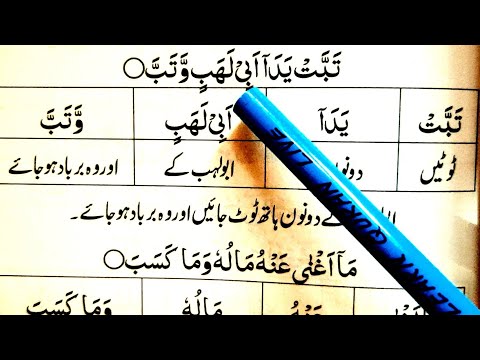 تَبَّتْ يَدَآ اَبِيْ لَهَبٍ وَّتَبَّ ○
تَبَّتْ يَدَآ اَبِيْ لَهَبٍ وَّتَبَّ
ٹوٹیں ابولہب کے اور وہ برباد ہو جائے
کے دونوں ہاتھ ٹوٹ جائیں اور وہ برباد ہو جائے۔
مَآ اَغْنٰى عَنْهُ مَالُهٗ وَمَا كَسَبَ ○
مَالُهٗ وَمَا كَسَبَ